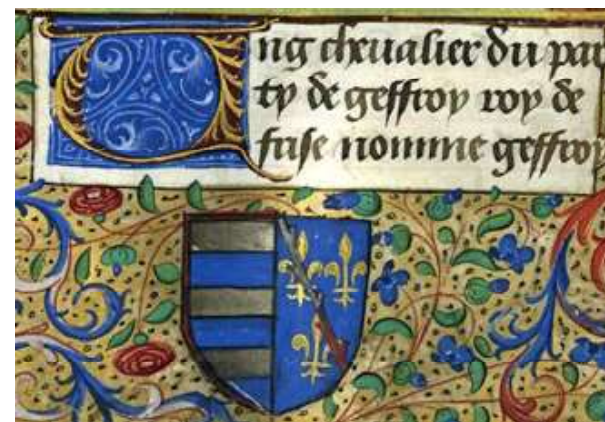 Ung cheualier du par
ty de geffroy roy de
frise nomme geffroy